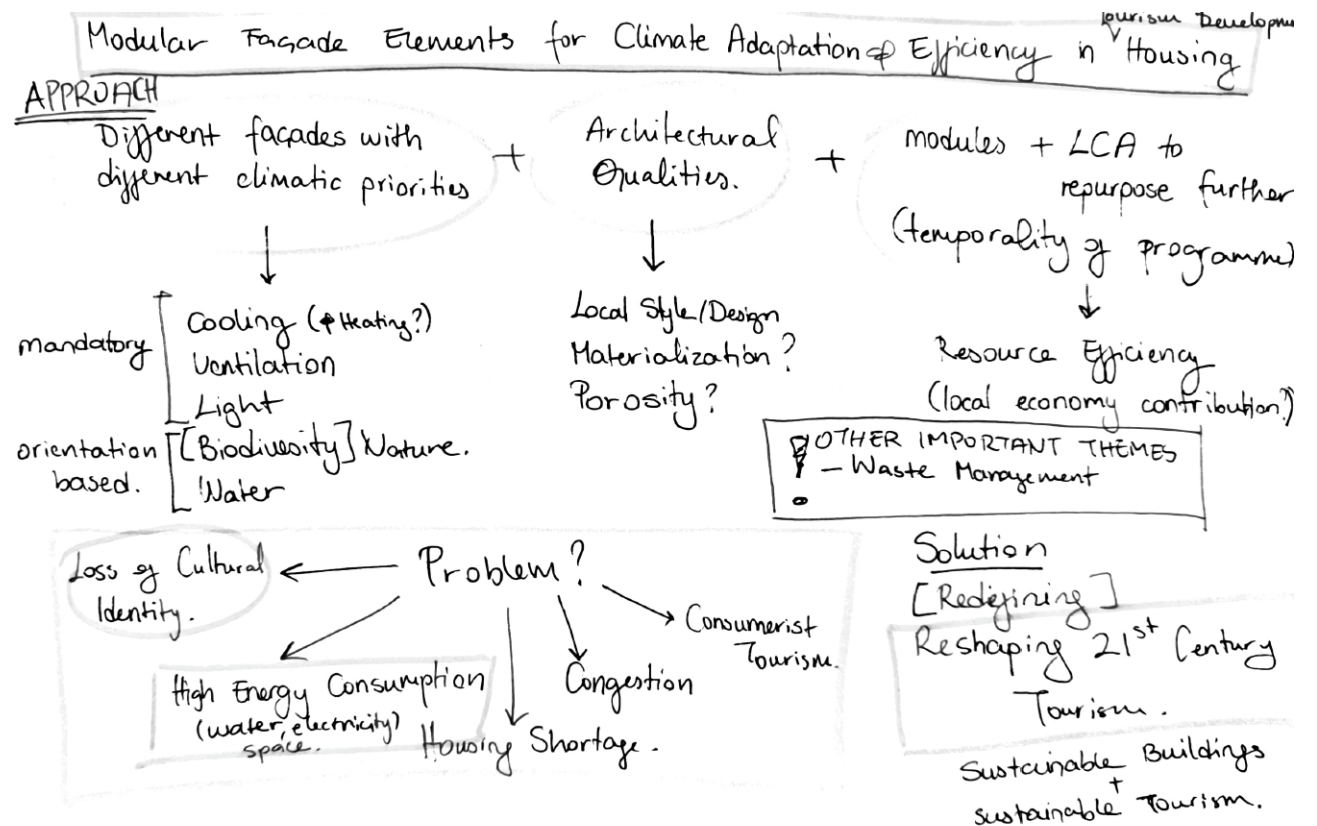 Tourism
Modular Façade Elements for Climate Adaptation & Efficiency in Housing
APPROACH
Different façades with
different climatic priorities
+
Architectural
Qualities.
+
modules + LCA to
repurpose further
(temporality of programme)
mandatory
Cooling (& Heating?)
Ventilation
Light
orientation
based.
[Biodiversity] Nature.
Water
Local Style/Design
Materialization?
Porosity?
Resource Efficiency
(local economy contribution?)
! OTHER IMPORTANT THEMES
- Waste Management
Problem?
Loss of Cultural
Identity.
High Energy Consumption
(water, electricity)
space.
Housing Shortage.
Congestion
Consumerist
Tourism.
Solution
[Redefining]
Reshaping 21st Century
Tourism.
Sustainable Buildings
+
sustainable Tourism.